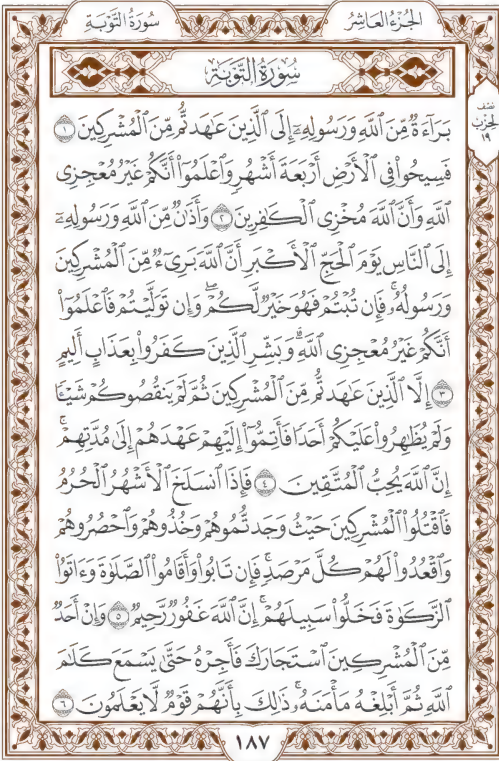 سُورَةُ التَّوْبَةِ
الجُزْءُ العَاشِرُ
سُورَةُ التَّوْبَةِ
نصف
الحزب
١٩
بَرَآءَةٌ مِّنَ ٱللَّهِ وَرَسُولِهِۦٓ إِلَى ٱلَّذِينَ عَٰهَدتُّم مِّنَ ٱلْمُشْرِكِينَ ١
فَسِيحُوا۟ فِى ٱلْأَرْضِ أَرْبَعَةَ أَشْهُرٍ وَٱعْلَمُوٓا۟ أَنَّكُمْ غَيْرُ مُعْجِزِى
ٱللَّهِ وَأَنَّ ٱللَّهَ مُخْزِى ٱلْكَٰفِرِينَ ٢ وَأَذَٰنٌ مِّنَ ٱللَّهِ وَرَسُولِهِۦٓ
إِلَى ٱلنَّاسِ يَوْمَ ٱلْحَجِّ ٱلْأَكْبَرِ أَنَّ ٱللَّهَ بَرِىٓءٌ مِّنَ ٱلْمُشْرِكِينَ
وَرَسُولُهُۥ فَإِن تُبْتُمْ فَهُوَ خَيْرٌ لَّكُمْ وَإِن تَوَلَّيْتُمْ فَٱعْلَمُوٓا۟
أَنَّكُمْ غَيْرُ مُعْجِزِى ٱللَّهِ وَبَشِّرِ ٱلَّذِينَ كَفَرُوا۟ بِعَذَابٍ أَلِيمٍ
٣ إِلَّا ٱلَّذِينَ عَٰهَدتُّم مِّنَ ٱلْمُشْرِكِينَ ثُمَّ لَمْ يَنقُصُوكُمْ شَيْـًٔا
وَلَمْ يُظَٰهِرُوا۟ عَلَيْكُمْ أَحَدًا فَأَتِمُّوٓا۟ إِلَيْهِمْ عَهْدَهُمْ إِلَىٰ مُدَّتِهِمْ ۚ
إِنَّ ٱللَّهَ يُحِبُّ ٱلْمُتَّقِينَ ٤ فَإِذَا ٱنسَلَخَ ٱلْأَشْهُرُ ٱلْحُرُمُ
فَٱقْتُلُوا۟ ٱلْمُشْرِكِينَ حَيْثُ وَجَدتُّمُوهُمْ وَخُذُوهُمْ وَٱحْصُرُوهُمْ
وَٱقْعُدُوا۟ لَهُمْ كُلَّ مَرْصَدٍ ۚ فَإِن تَابُوا۟ وَأَقَامُوا۟ ٱلصَّلَوٰةَ وَءَاتَوُا۟
ٱلزَّكَوٰةَ فَخَلُّوا۟ سَبِيلَهُمْ ۚ إِنَّ ٱللَّهَ غَفُورٌ رَّحِيمٌ ٥ وَإِنْ أَحَدٌ
مِّنَ ٱلْمُشْرِكِينَ ٱسْتَجَارَكَ فَأَجِرْهُ حَتَّىٰ يَسْمَعَ كَلَٰمَ
ٱللَّهِ ثُمَّ أَبْلِغْهُ مَأْمَنَهُۥ ۚ ذَٰلِكَ بِأَنَّهُمْ قَوْمٌ لَّا يَعْلَمُونَ ٦
١٨٧